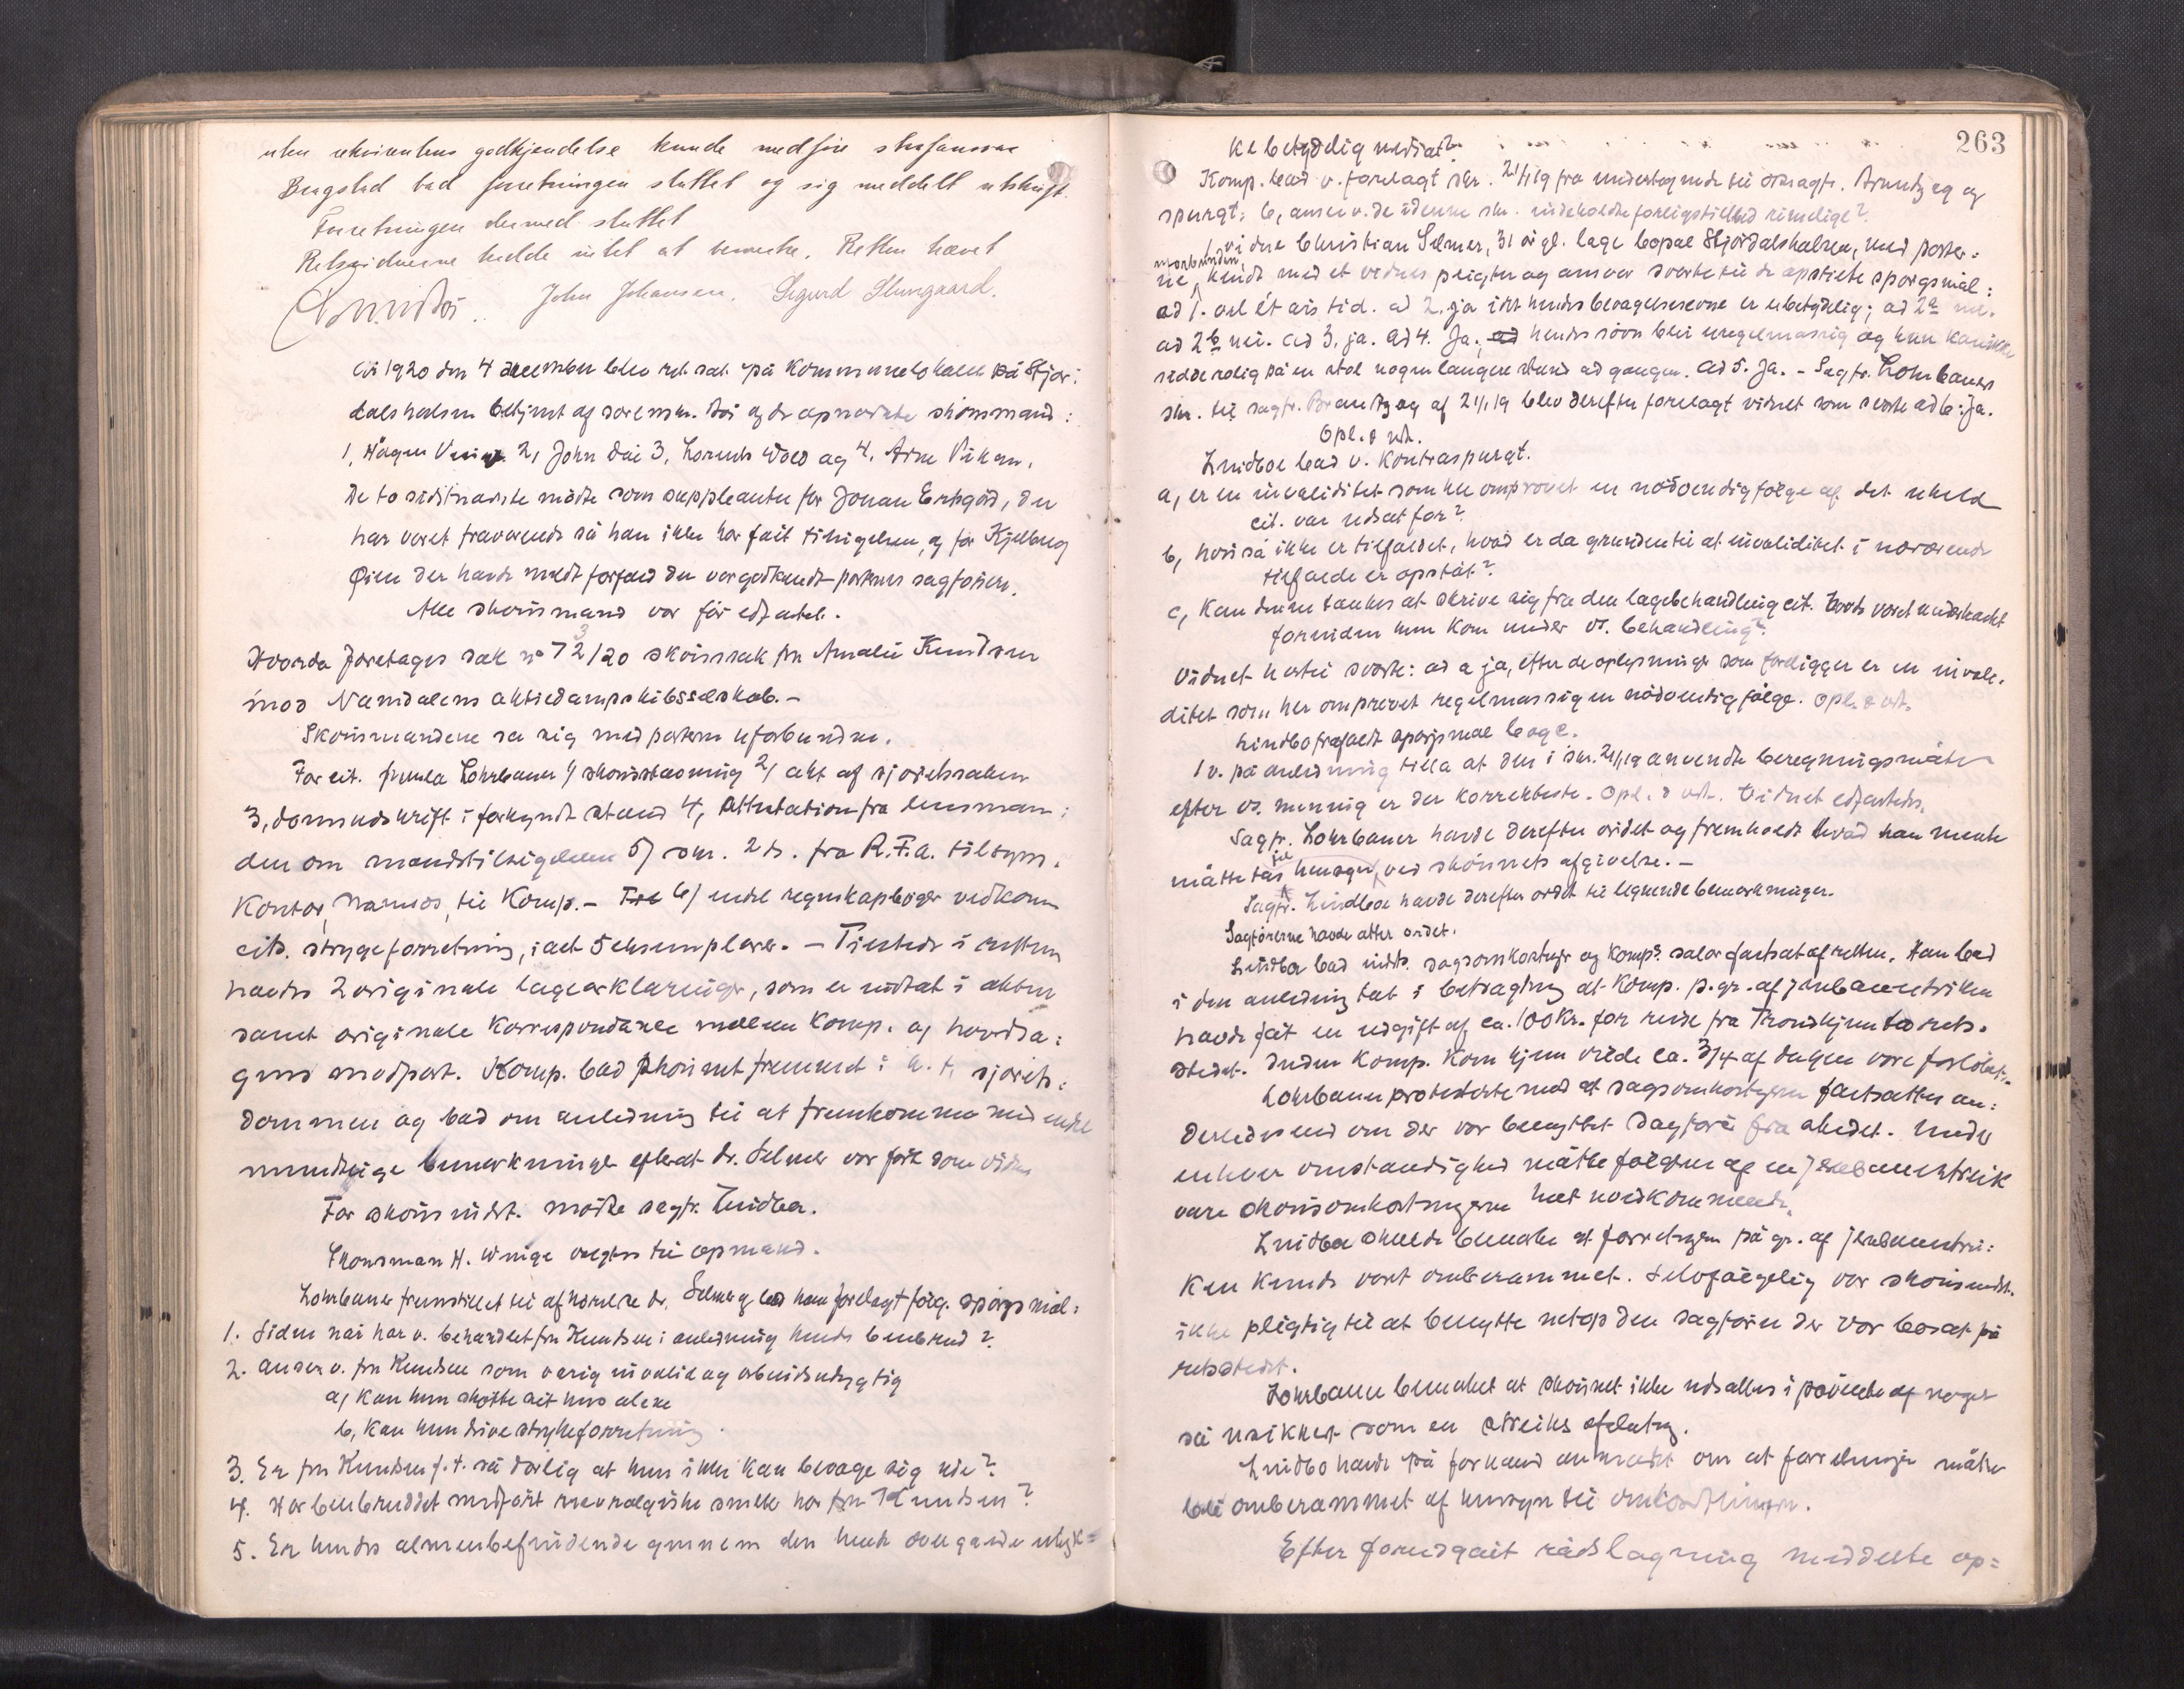 uten rekvirentens godkjendelse kunde medføre strafansvar
Bugsted bad forretningen sluttet og sig meddelt utskrift.
Forretningen dermed sluttet
Retsvidnerne hadde intet at bemerke. Retten hævet
John Johansen. Sigurd Slungaard.
År 1920 den 4 december blev ret sat på kommunelokalet på Stjør:
dalshalsen betjent af sorenskr. og de opnævnte skønsmænd:
1, Hågen 2, John 3, Lorents Wold og 4, Arne Viken.
De to sidstnævnte mødte som suppleanter for Johan, der
har været fraværende så han ikke har fåt tilsigelsen, og for Kjelberg
Øien der havde meldt forfald der var godkendt partens sagfører.
Alle skønsmænd var før edfæstet.
Hvorda foretages sak no 73/20 skønssak fru Amalie Knudsen
mod Namdalens aktiedampskibsselskab.-
Skønsmændene sa sig med parterne uforbundne.
For cit. fremla Lohrbauer 1/ skønsstævning 2/ akt af sjøretssaken
3, domsudskrift i forkyndt stand 4, Attestation fra lensman:
den om mandstilsigelsen 5/ skr. 2 ds. fra R.F.A. tilsyns.
kontor, Namsos, til Komp.- 6/ endel regnskapsbøger vedkom
cits. strygeforretning, i alt 5 eksemplarer.- Tilstede i retten
havdes 2 originale lægeerklæringer, som er indtat i akten
samt originale korrespondanse mellem Komp. og hovedsa:
gens modpart. Komp. bad skønnet fremmet i h. t. sjørets:
dommen og bad om anledning til at fremkomme med endel
mundtlige bemerkninger efterat dr. Selmer var ført som vidne
For skøns indst. mødte sagfr. Lindboe.
Skønsman H. Winge valgtes til opmand.
Lohrbauer fremstillet til afhørelse dr. Selmer og bad ham forelagt følg. spørgsmål:
1. Siden når har v. behandlet fru Knudsen i anledning hendes benbrud?
2. Anser v. fru Knudsen som varig invalid og arbeidsudygtig
a, kan hun skøtte sit hus alene
b, kan hun drive strykeforretning.
3. Er fru Knudsen f. t. så dårlig at hun ikke kan bevæge sig ute?
4. Har benbruddet medført nevralgiske smerter hos fru Knudsen?
5. Er hendes almenbefindende gjennem den hende overgåede ulyk=
263
ke betydelig nedsat?
Komp. bad v. forelagt skr. 21/1 19 fra undertegnede til sagfr. Brandtzæg og
spurgt: 6, anser v. de i denne skr. indeholdte forligstilbud rimelige?
1 vidne Christian Selmer, 31 år gl. læge bopæl Stjørdalshalsen, med parter:
ne uforbunden, kendt med et vidnes pligter og ansvar svarte til de opstilte spørgsmål:
ad 1. vel ét års tid. ad 2. ja idet hendes bevægelsesevne er ubetydelig; ad 2a nei.
ad 2b nei. ad 3. ja. ad 4. Ja., hendes søvn blir uregelmæssig og hun kan ikke
sidde rolig på en stol nogen længere stund ad gangen. ad 5. Ja. - Sagfr. Lohrbauers
skr. til sagfr. Brandtzæg af 21/1 19 blev derefter forelagt vidnet som svarte ad 6: Ja.
Opl. & vdt.
Lindboe bad v. kontraspurgt.
a, er en invaliditet som her omprovet en nødvendig følge af det uheld
cit. var udsat for?
b, hvis så ikke er tilfældet, hvad er da grunden til at invaliditet i nærværende
tilfælde er opståt?
c, Kan denne tænkes at skrive sig fra den lægebehandling cit. havde været underkastet
forinden hun kom under vs. behandling?
Vidnet hertil svarte: ad a ja, efter de oplysninger som foreligger er en invali:
ditet som her omprovet regelmæssig en nødvendig følge. Opl. & vdt.
Lindbo frafaldt spørgsmål b og c.
1 v. på anledning tilla at den i skr. 21/1 19 anvendte beregningsmåte
efter vs. mening er den korrekteste. Opl. & vdt. Vidnet edfæstedes.
Sagfr. Lohrbauer havde derefter ordet og fremholdt hvad han mente
måtte tas hensyn til ved skønnets afgivelse.-
Sagfr. Lindboe havde derefter ordet til lignende bemerkninger.
Sagførerne havde atter ordet.
Lindboe bad indst. sagsomkostngr og komp? salær fastsat af retten. Han bad
i den anledning tat i betragtng at komp. p. gr. af jernbanestriken
havde fåt en udgift af ca. 100 kr. for reise fra Trondhjem to rets.
stedet. Inden komp. kom hjem vilde ca. 3/4 af dagen være forløbet.
Lohrbauer protesterte mod at sagsomkostngrne fastsattes an:
derledes end om der var benyttet sagfører fra stedet. Under
enhver omstændighed måtte følgerne af en jernbanestreik
være skønsomkostngrne helt uvedkommende.
Lindboe skulde bemerke at forretngen på gr. af jernbanestrei:
ken kunde vært omberammet. Selvfølgelig var skønsindst.
ikke pligtig til at benytte netop den sagfører der var bosat på
retsstedet.
Lohrbauer bemerket at skønnet ikke udsættes i påvente af noget
så usikkert som en streiks afslutng.
Lindbo havde på forhånd anmodet om at forretningen måtte
bli omberammet af hensyn til omkostningerne.
Efter foregåt rådslagning meddelte op=